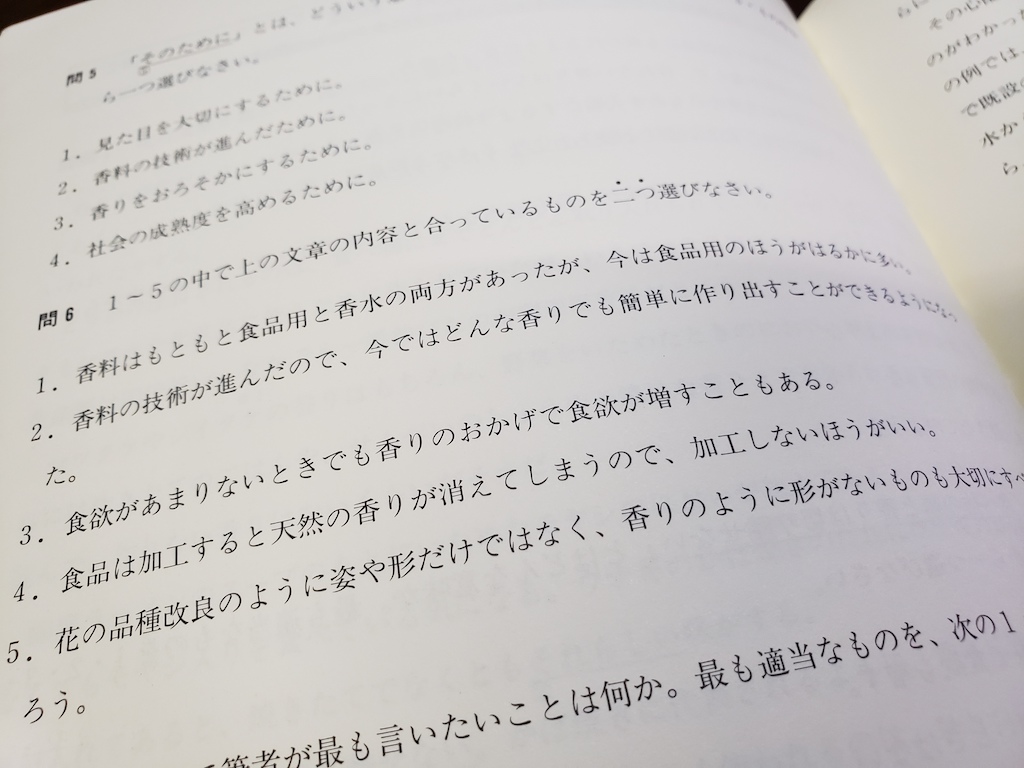 問5 「そのために」とは、どういう
②
ら一つ選びなさい。
1. 見た目を大切にするために。
2. 香料の技術が進んだために。
3. 香りをおろそかにするために。
4. 社会の成熟度を高めるために。
問6 1～5の中で上の文章の内容と合っているものを二つ選びなさい。
1. 香料はもともと食品用と香水の両方があったが、今は食品用のほうがはるかに多い。
2. 香料の技術が進んだので、今ではどんな香りでも簡単に作り出すことができるようになっ
た。
3. 食欲があまりないときでも香りのおかげで食欲が増すこともある。
4. 食品は加工すると天然の香りが消えてしまうので、加工しないほうがいい。
5. 花の品種改良のように姿や形だけではなく、香りのように形がないものも大切にすべ
ろう。
筆者が最も言いたいことは何か。最も適当なものを、次の1
その心
のがわかっ
の例では、
で既設の
水か
ら